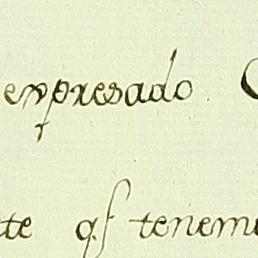 expresado
te qs tenem